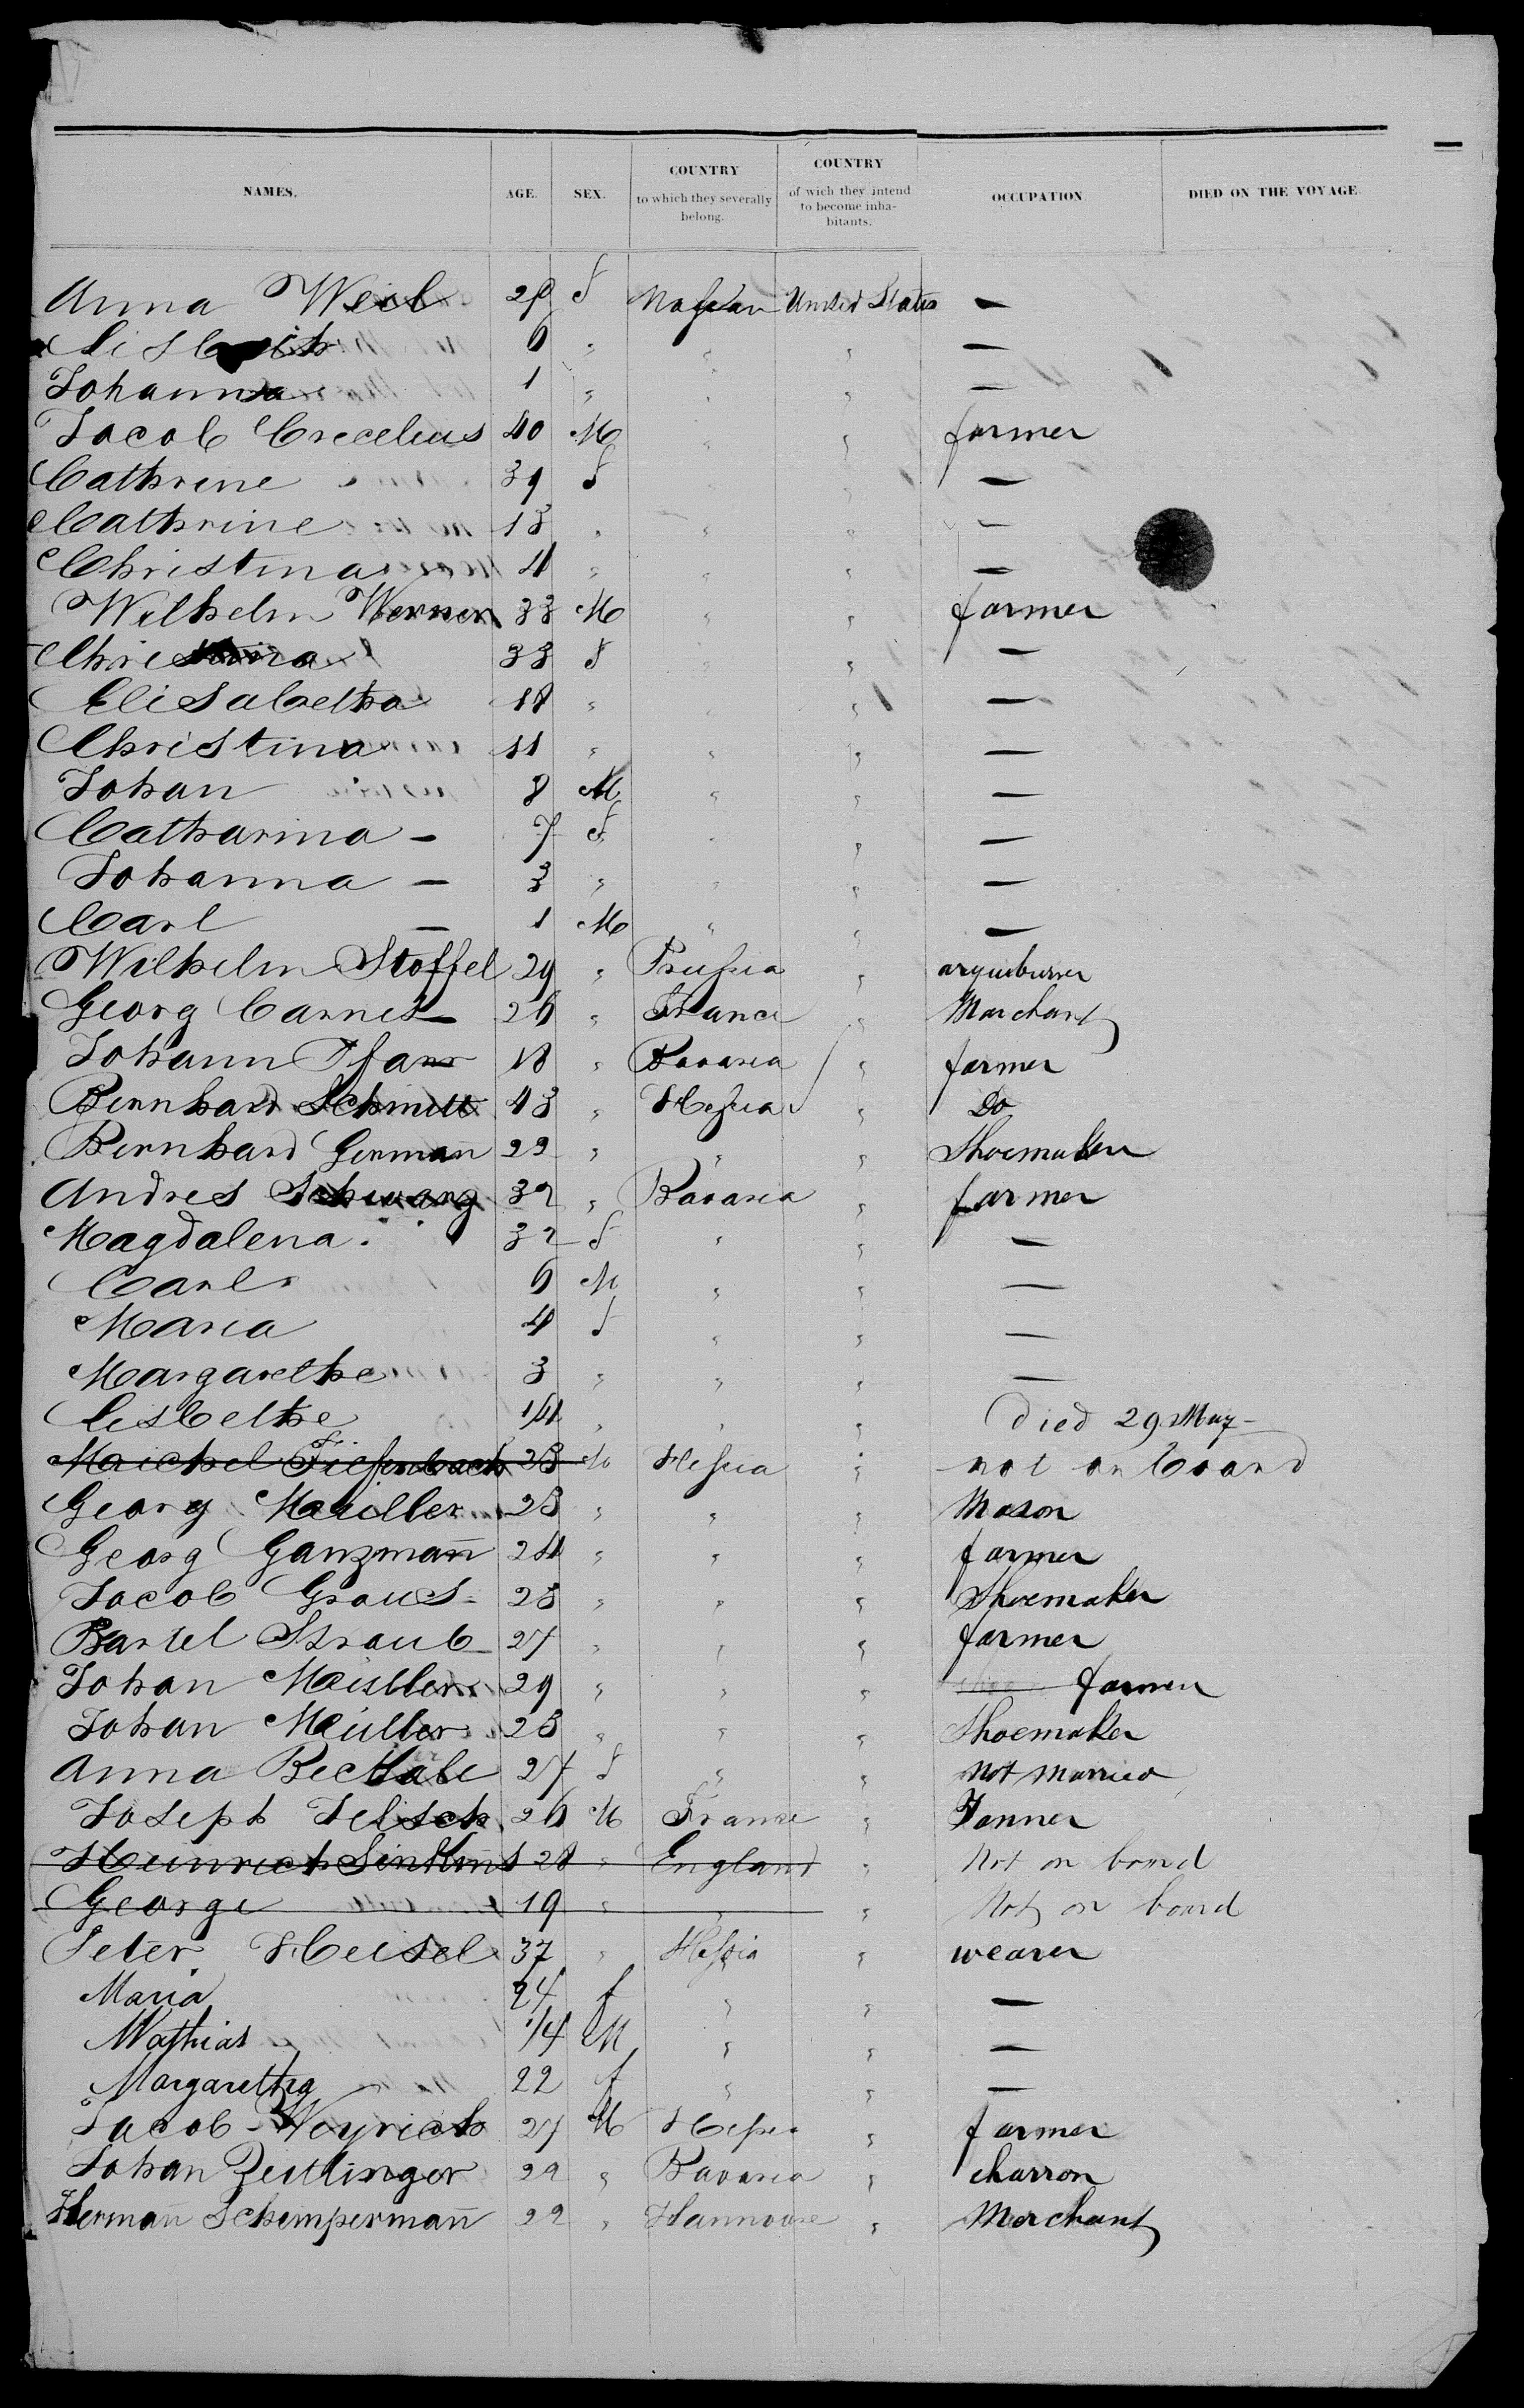 NAMES. AGE. SEX. COUNTRY to which they severally belong. COUNTRY of wich they intend to become inhabitants. OCCUPATION DIED ON THE VOYAGE.
Anna Weil 29 f Nassau United States —
Lisbeth 6 " " " —
Johanna 1 " " " —
Jacob Crecelius 40 M " " farmer
Cathrine 39 f " " —
Cathrine 13 " " " —
Christina 4 " " " —
Wilhelm Werner 33 M " " farmer
Christina 33 f " " —
Elisabetha " " " —
Christina 11 " " " —
Johan 8 M " " —
Catharina - 7 f " " —
Johanna - 3 " " " —
Carl - 1 M " " —
Wilhelm Stoffel 29 " Prussia "
Georg Carnet 26 " France " Marchant
Johann Pfarr 18 " Bavaria " farmer
Bernhard Schmitt 43 " Hessia " Do
Bernhard Germañ 22 " " " Shoemaker
Andres Schwarz 32 " Bavaria " farmer
Magdalena. 32 f " " —
Carl 6 M " " —
Maria 4 f " " —
Margarethe 3 " " " —
Lisbethe 1/4 " " " Died 29 May -
Maichel Tiefenbach 23 M Hessia " not on board
Georg Maüller 23 " " " Mason
Georg Ganzmañ 24 " " " farmer
Jacob Graus 23 " " " Shoemaker
Bartel Straub 27 " " " farmer
Johan Maüller 29 " " " farmer
Johan Maüller 23 " " " Shoemaker
Anna 27 f " " not married
Joseph Jelsch 26 M France " Tanner
Heinrich 28 " England " Not on board
George 19 " " " Not on board
Peter Heisel 37 " Hessia " weaver
Maria 24 f " " —
Mathias 1/4 M " " —
Margaretha 22 f " " —
Jacob Weyrich 27 M Hessia " farmer
Johan Zeitlinger 22 " Bavaria " charron
Hermañ Schempermañ 22 " Hannovre " Merchant